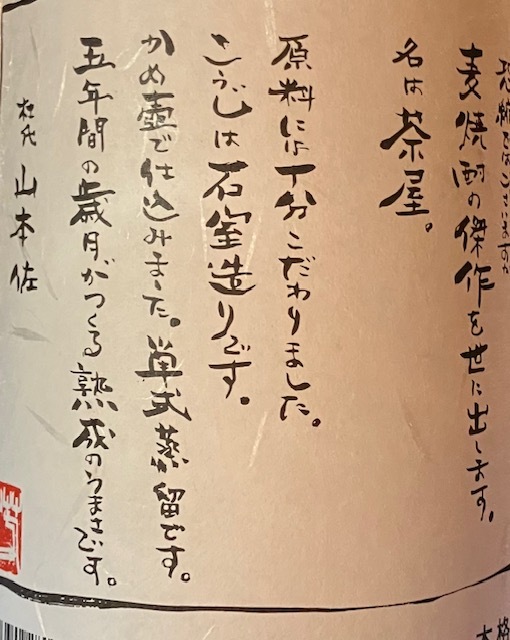 麦焼酎の傑作を世に出します。
名は茶屋。
原料には十分こだわりました。
こうじは石室造りです。
かめ壷で仕込みました。単式蒸留です。
五年間の歳月がつくる熟成のうまさです。
杜氏 山本佐